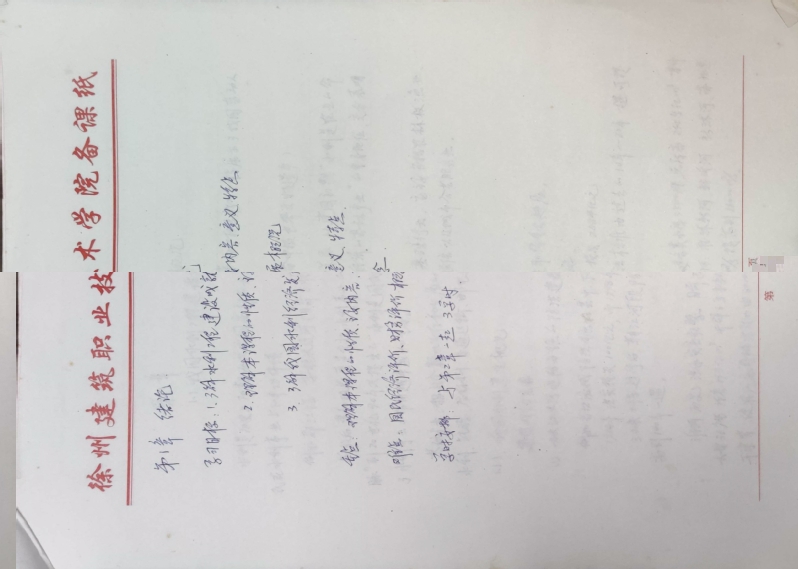 徐州建筑职业技术学院备课纸
第1章 绪论
学习目标:1.了解水利工程建设成就
2.理解本课程的性质、内容、意义、特点
3.了解我国水利经济发展概况
重点:理解本课程的性质、内容、意义、特点
难点:国民经济评价、财务评价概念
学时安排:与第二章一起 3学时
第 页